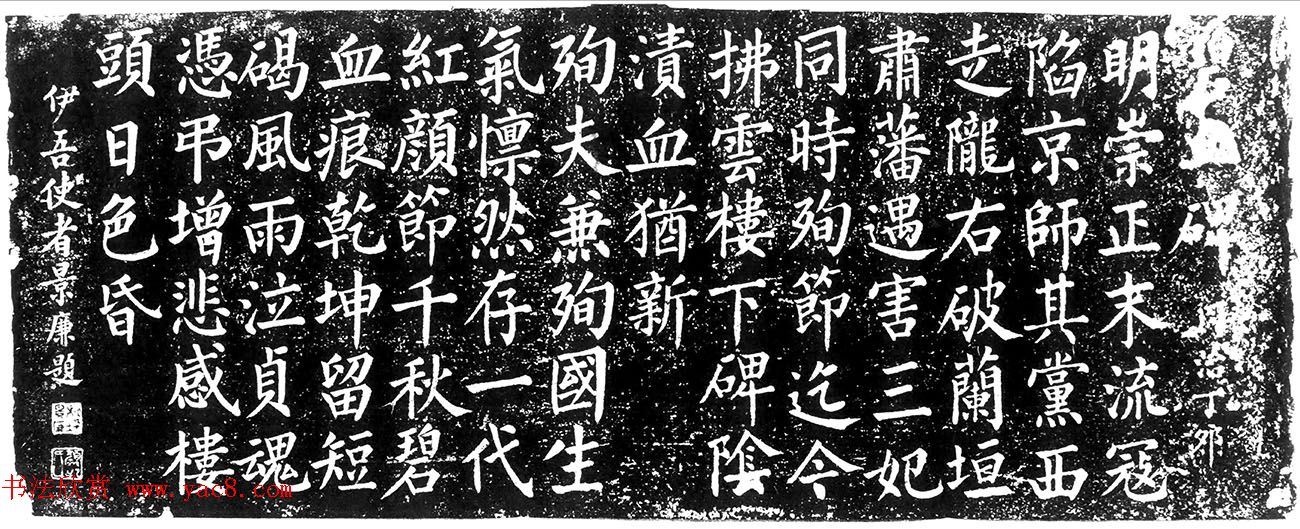 碑 治丁卯
明崇正末流寇
陷京師其黨西
走隴右破蘭垣
肅藩遇害三妃
同時殉節迄今
拂雲樓下碑陰
漬血猶新
殉夫兼殉國生
氣懍然存一代
紅顏節千秋碧
血痕乾坤留短
碣風雨泣貞魂
憑弔增悲感樓
頭日色昏
伊吾使者景廉題
书法欣赏 www.yac8.com